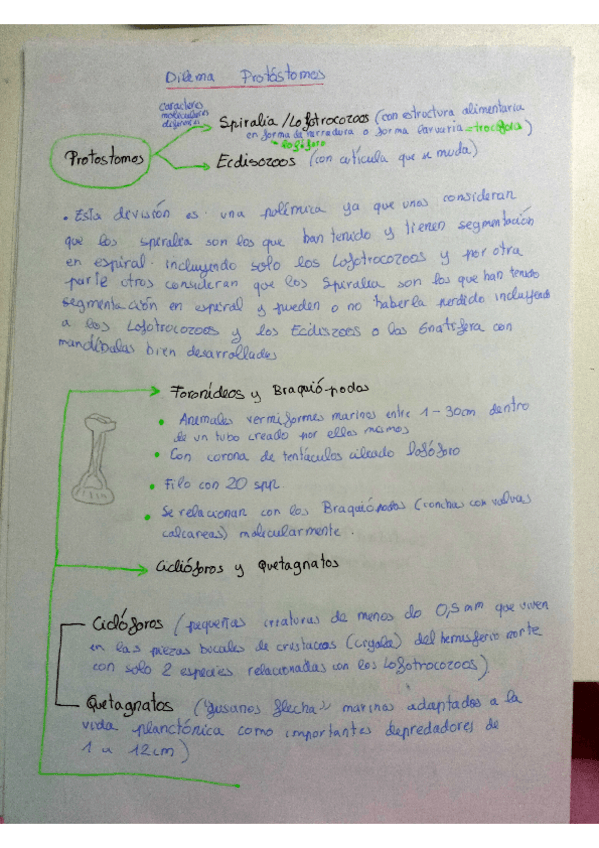 Dilema Protóstomos
caracteres
moleculares
diferentes
Spiralia/Lofotrocozoos (con estructura alimentaria
en forma de herradura o forma larvaria = trocófora)
lofóforo
Protostomos
Ecdisozoos (con cutícula que se muda)
• Esta división es una polémica ya que unos consideran
que los spiralia son los que han tenido y tienen segmentación
en espiral incluyendo solo los Lofotrocozoos y por otra
parte otros consideran que los Spiralia son los que han tenido
segmentación en espiral y pueden o no haberla perdido incluyendo
a los Lofotrocozoos y los Ecdisozoos o las Gnatifera con
mandíbulas bien desarrolladas
Foronídeos y Braquió-podos
• Animales vermiformes marinos entre 1-30cm dentro
de un tubo creado por ellos mismos
• Con corona de tentáculos ciliado lofóforo
• Filo con 20 spp.
• Se relacionan con los Braquiópodos (conchas con valvas
calcareas) molecularmente.
Ciclióforos y Quetagnatos
Ciclóforos (pequeñas criaturas de menos de 0,5mm que viven
en las piezas bucales de crustaceos (cigala) del hemisferio norte
con solo 2 especies relacionadas con los Lofotrocozoos)
Quetagnatos («gusanos flecha» marinos adaptados a la
vida planctónica como importantes depredadores de
1 a 12cm)